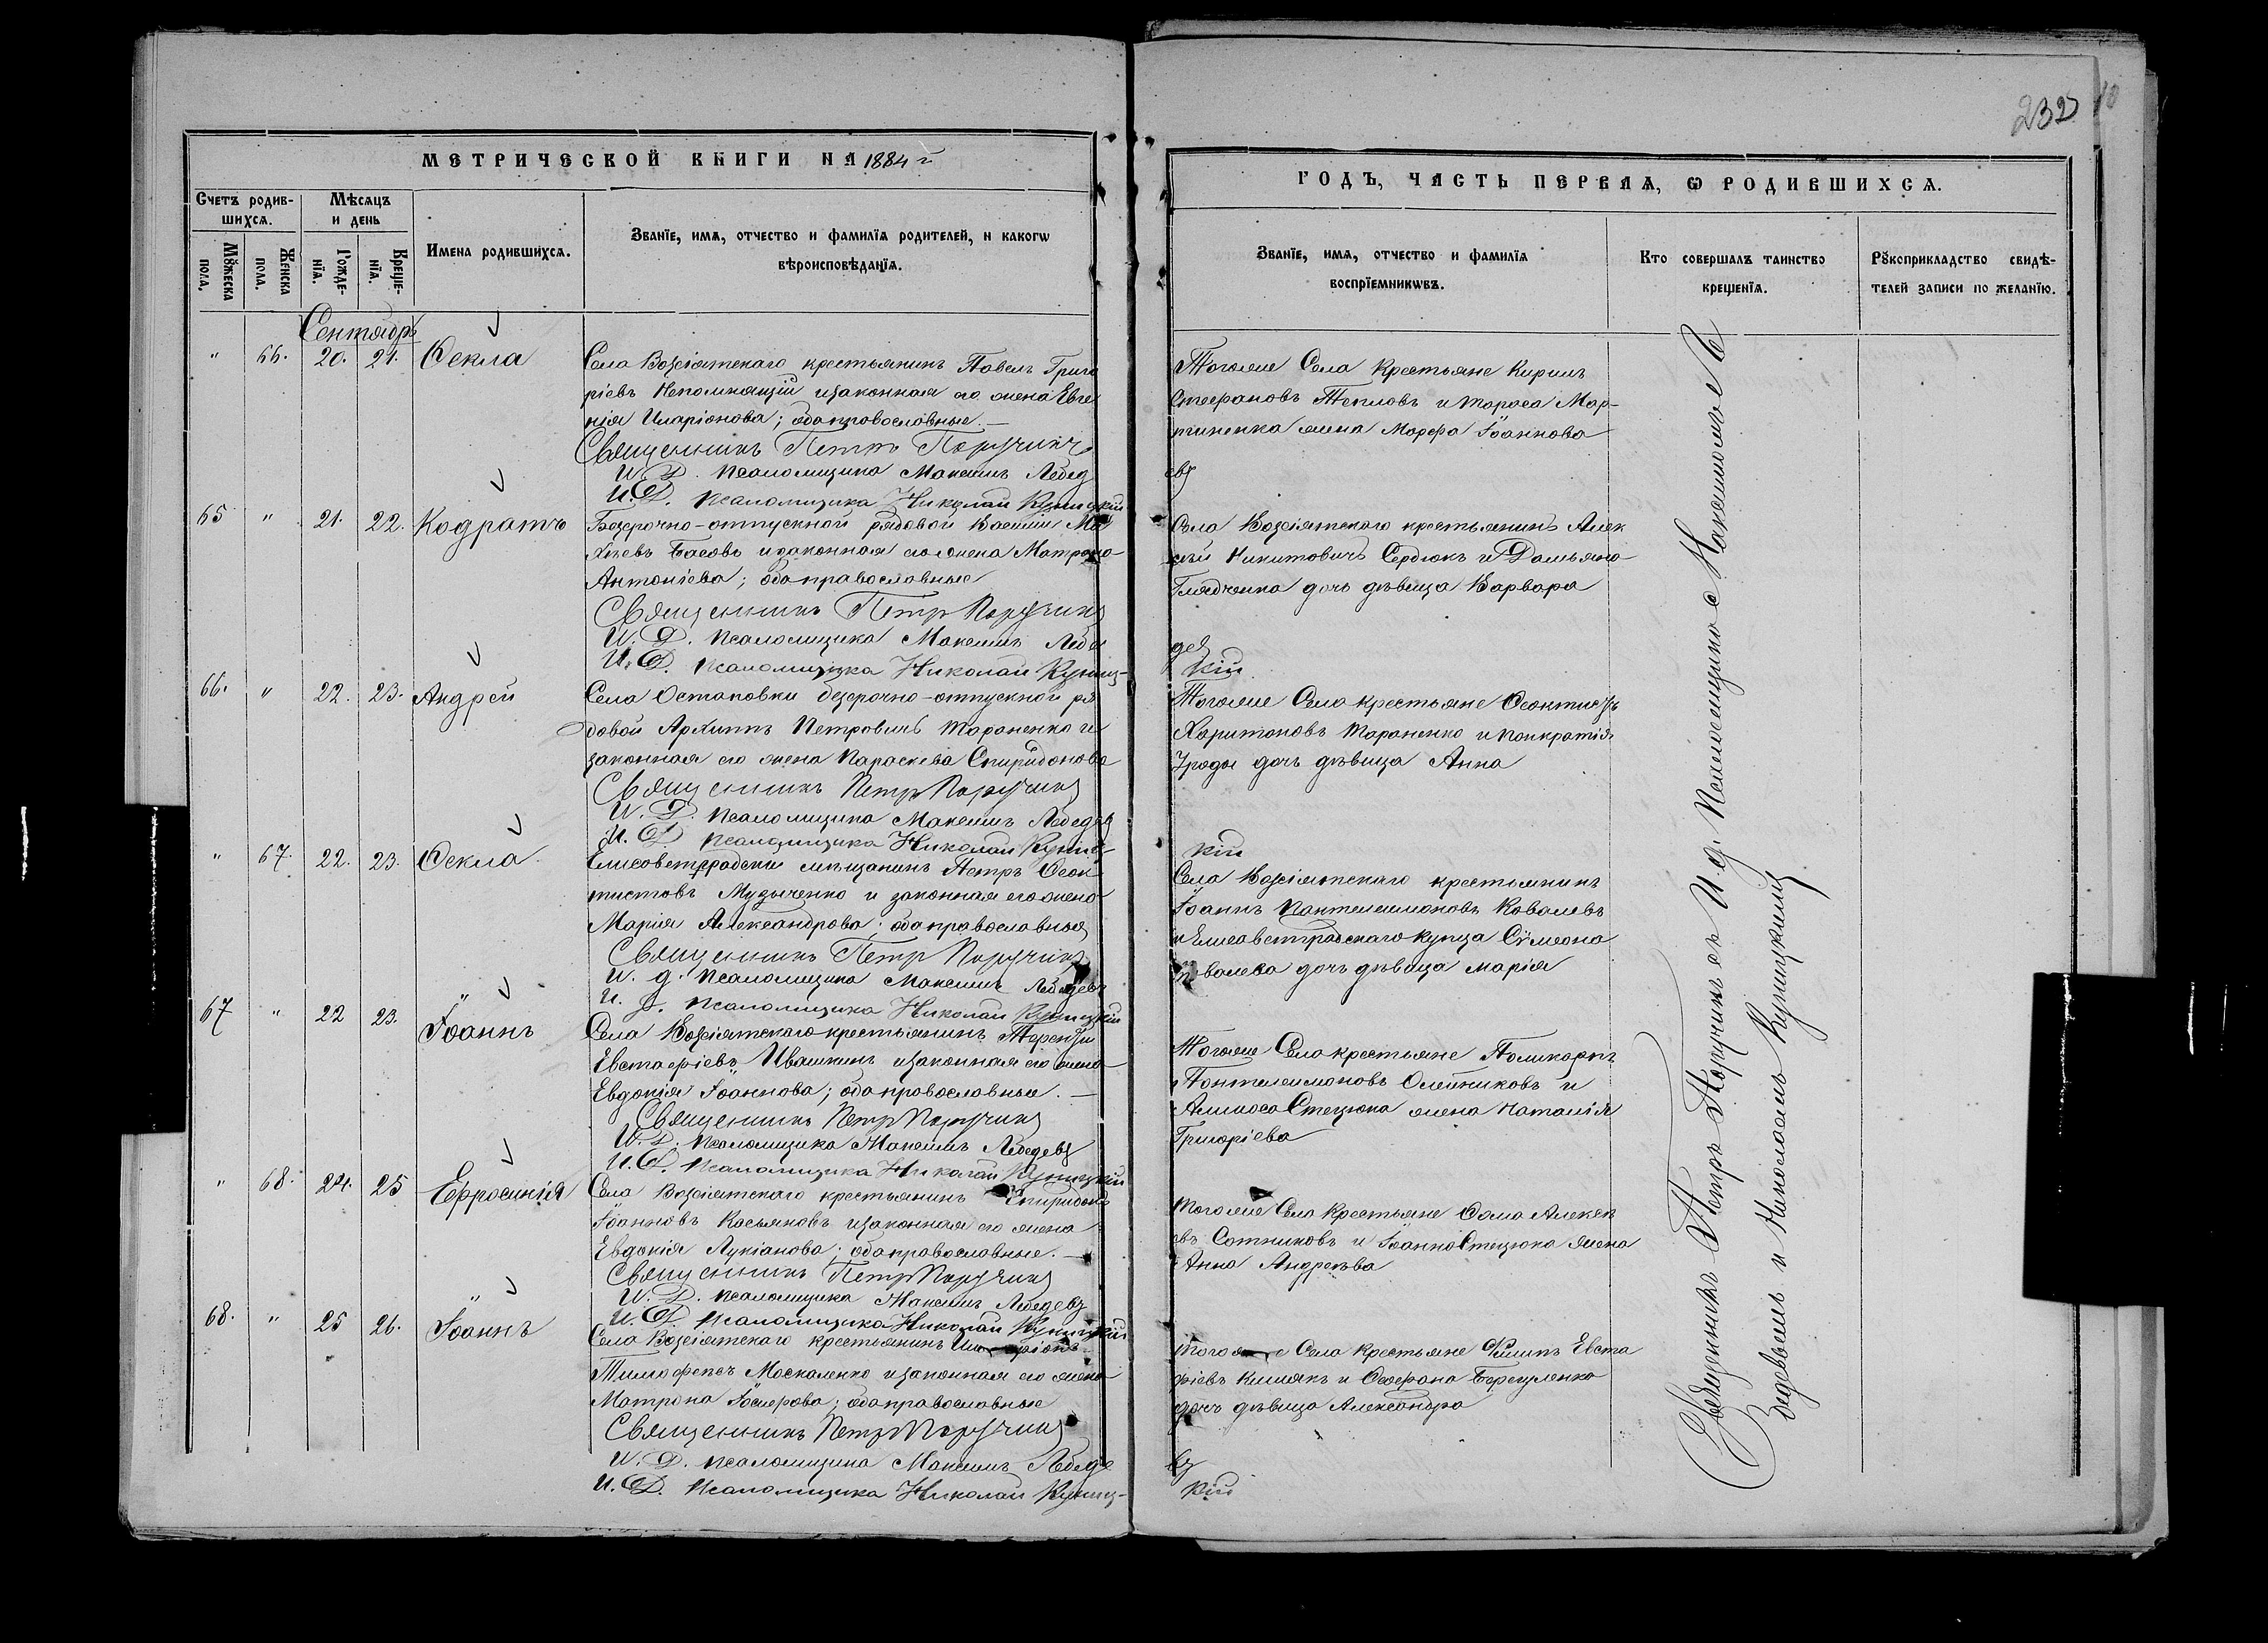 232
10
МЕТРИЧЕСКОЙ КНИГИ НА 1884 г.
ГОДЪ, ЧАСТЬ ПЕРВАЯ, Ѡ РОДИВШИХСѦ.
Счетъ родив-
шихсѧ.
Мѣсѧцъ
и день
Имена родившихсѧ.
Званїе, имѧ, отчество и фамилїѧ родителей, и какогѡ
вѣроисповѣданїѧ.
Мꙋжеска
пола.
Женска
пола.
Рожде-
нїѧ.
Креще-
нїѧ.
Званїе, имѧ, отчество и фамилїѧ
воспрїемникѡвъ.
Кто совершалъ таинство
крещенїѧ.
Рꙋкоприкладство свидѣ-
телей записи по желанїю.
Сентябрь
" 66. 20. 21. Ѳекла
Села Возсіятскаго крестьянинъ Павелъ Григо
ріевъ Непомнящій и законная его жена Евге
нія Иларіонова; оба православные. —
Священникъ Петръ Поручикъ
И. Д. Псаломщика Максимъ Лебед
И. Д. Псаломщика Николай Куницкій
Тогоже Села Крестьяне Кирилъ
Стефановъ Тепловъ и Тараса Мар-
тиненка жена Марфа Іоаннова
евъ
65 " 21. 22. Кодратъ
Безсрочно-отпускной рядовой Василій Мат
ѳѣевъ Басовъ и законная его жена Матрона
Антоніева; оба православные
Священникъ Петръ Поручикъ
И. Д. Псаломщика Максимъ Лебе
И. Д. Псаломщика Николай Куниц-
Села Возсіятскаго крестьянинъ Алек
сѣй Никитовичъ Сердюкъ и Дамьяна
Гладченка дочь дѣвица Варвара
девъ
кій
66. " 22. 23. Андрей
Села Остаповки безсрочно-отпускной ря
довой Архиппъ Петровичъ Тараненко и
законная его жена Параскева Спиридонова
Священникъ Петръ Поручикъ
И. Д. Псаломщика Максимъ Лебедевъ
И. Д. Псаломщика Николай Куниц-
Тогоже Села крестьяне Ѳеоктистъ
Харитоновъ Тараненко и Панкратія
дочь дѣвица Анна
кій
" 67. 22. 23. Ѳекла
Елисаветградскій мѣщанинъ Петръ Ѳеок
тистовъ Музыченко и законная его жена
Марія Александрова; оба православные
Священникъ Петръ Поручикъ
И. д. Псаломщика Максимъ Лебедевъ
И. Д. Псаломщика Николай Куницкій
Села Возсіятскаго крестьянинъ
Іоаннъ Пантелеимоновъ Ковалевъ
и Елисаветградскаго купца Сѵмеона
Ковалева дочь дѣвица Марія
67 " 22 23. Іоаннъ
Села Возсіятскаго крестьянинъ Терентій
Евстафіевъ Ивашкинъ и законная его жена
Евдокія Іоаннова; оба православные. —
Священникъ Петръ Поручикъ
И. Д. Псаломщика Максимъ Лебедевъ
И. Д. Псаломщика Николай Куницкій
Тогоже Села крестьяне Поликарпъ
Пантелеимоновъ Олейниковъ и
Стецюка жена Наталія
Григоріева
" 68. 24. 25 Ефросинія
Села Возсіятскаго крестьянинъ Спиридонъ
Іоанновъ Касьяновъ и законная его жена
Евдокія Лукіанова; оба православные. —
Священникъ Петръ Поручикъ
И. Д. Псаломщика Максимъ Лебедевъ
И. Д. Псаломщика Николай Куницкій
Тогоже Села Крестьяне Ѳома Алексѣ
евъ Сотниковъ и Іоанна Стецюка жена
Анна Андреева
68. " 25 26. Іоаннъ
Села Возсіятскаго крестьянинъ Иларіонъ
Тимофеевъ Москаленко и законная его жена
Матрона Іосифова; оба православные
Священникъ Петръ Поручикъ
И. Д. Псаломщика Максимъ Лебеде
И. Д. Псаломщика Николай Куниц-
Тогоже Села Крестьяне Филипъ Евста
фіевъ и Стефана
дочь дѣвица Александра
въ
кій
Священникъ Петръ Поручикъ съ И. д. Псаломщика с Максимомъ Ле
бедевымъ и Николаемъ Куницкимъ